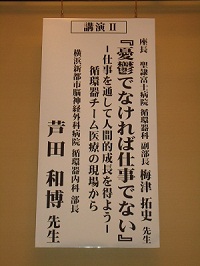 講演Ⅱ
座長 聖隷富士病院 循環器科 副部長 梅津 拓史 先生
『憂鬱でなければ仕事でない』
－仕事を通して人間的成長を得よう－
循環器チーム医療の現場から
横浜新都市脳神経外科病院 循環器内科 部長
芦田 和博 先生